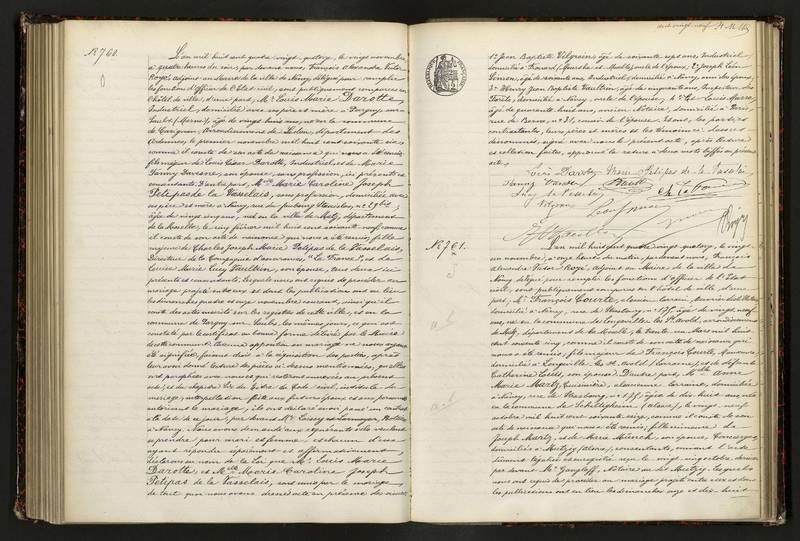 N° 760.
L'an mil huit cent quatre vingt quatorze, le vingt novembre
à quatre heures du soir, par devant nous, François Alexandre Victor
Rozé, adjoint au Maire de la ville de Nancy, délégué pour remplir
les fonctions d'officier de l'Etat civil, sont publiquement comparus en
l'hôtel de ville, d'une part, Mr Louis Marie Darotte,
Industriel, domicilié avec ses père et mère à Pargny sur
Saulx (Marne), âgé de vingt huit ans, né en la commune
de Carignan, Arrondissement de Sedan, département des
Ardennes, le premier novembre mil huit cent soixante six,
comme il conste de son acte de naissance qui nous a été remis,
fils majeur de Louis César Darotte, Industriel, et de Marie
Fanny Davesne, son épouse, sans profession, ici présents et
consentants. D'autre part, Melle Marie Caroline Joseph
Petitpas de la Vasselais, sans profession, domiciliée avec
ses père et mère à Nancy, rue du faubourg Stanislas, n° 29 bis,
âgée de vingt cinq ans, née en la ville de Metz, département
de la Moselle, le cinq février mil huit cent soixante neuf, comme
il conste de son acte de naissance qui nous a été remis, fille
majeure de Charles Joseph Marie Petitpas de la Vasselais,
Directeur de la Compagnie d'assurances "La France", et de
Louise Marie Lucy Vaultrin, son épouse, tous deux ici
présents et consentants. Lesquels nous ont requis de procéder au
mariage projeté entre eux et dont les publications ont eu lieu
les dimanches quatre et onze novembre courant, ainsi qu'il
conste des actes inscrits sur les registres de cette ville, et en la
commune de Pargny sur Saulx les mêmes jours, ce qui est
constaté par le certificat en bonne forme délivré par le Maire
de cette commune. Aucune opposition au mariage ne nous ayant
été signifiée, faisant droit à la réquisition des parties, après
leur avoir donné lecture des pièces ci-dessus mentionnées, qu'elles
ont paraphées avec nous et qui resteront annexées au présent
acte, et du chapitre VI du titre du Code civil, intitulé du
mariage, interpellation faite aux futurs époux et aux personnes
autorisant le mariage, ils ont déclaré avoir passé un contrat
à la date de ce jour, par devant Me
à Nancy. Nous avons demandé aux requérants s'ils veulent
se prendre pour mari et femme, et chacun d'eux
ayant répondu séparément et affirmativement
déclarons au nom de la Loi que Mr Louis Marie
Darotte, et Melle Marie Caroline Joseph
Petitpas de la Vasselais, sont unis par le mariage
de tout quoi nous avons dressé acte en présence des sieurs
1° Jean Baptiste Vilgrain, âgé de soixante sept ans, Industriel
domicilié à Frouard (Meurthe et Moselle) de l'époux; 2° Joseph Léon
Simon, âgé de soixante ans, Industriel, domicilié à Nancy, ami des époux,
3° Henry Jean Baptiste Vaultrin, âgé de cinquante ans, Inspecteur des
Forêts, domicilié à Nancy, oncle de l'épouse, 4° Louis
âgé de quarante huit ans, domicilié à Paris
rue de Berne, n° 31, cousin de l'épouse. Et ont, les parties
contractantes, leurs pères et mères et les témoins ci-dessus
dénommés, signé avec nous le présent acte, après lecture
et collation faites,
acte.
N° 761.
L'an mil huit cent quatre vingt quatorze, le vingt
un novembre, à onze heures du matin, par devant nous, François
Alexandre Victor Rozé, adjoint au Maire de la ville de
Nancy, délégué pour remplir les fonctions d'officier de l'Etat
civil, sont publiquement comparus en l'hôtel de ville, d'une
part, Mr François Courte, alsacien lorrain,
domicilié à Nancy, rue de Strasbourg, n° 175, âgé de vingt neuf
ans, né en la commune de Longeville lès St Avold, arrondissement
de Metz, département de la Moselle, le trente un Mars mil huit
cent soixante cinq, comme il conste de son acte de naissance qui
nous a été remis, fils majeur de François Courte, Manœuvre,
domicilié à Longeville lès St Avold (Lorraine), et de défunte
Catherine son épouse. D'autre part, Melle Anne
Marie Martz, Cuisinière, alsacienne lorraine, domiciliée
à Nancy, rue de Strasbourg, n° 175, âgée de dix huit ans, née
en la commune de Schiltigheim (Alsace), le vingt neuf
octobre mil huit cent soixante seize, comme il conste de son
acte de naissance qui nous a été remis, fille mineure de
Joseph Martz, et de Marie Münch, son épouse, Concierges,
domiciliés à Mutzig (Alsace), consentants, suivant l'acte
reçu le vingt cinq octobre dernier
par devant Me Gangloff, Notaire au dit Mutzig. Lesquels
nous ont requis de procéder au mariage projeté entre eux et dont
les publications ont eu lieu les dimanches onze et dix-huit